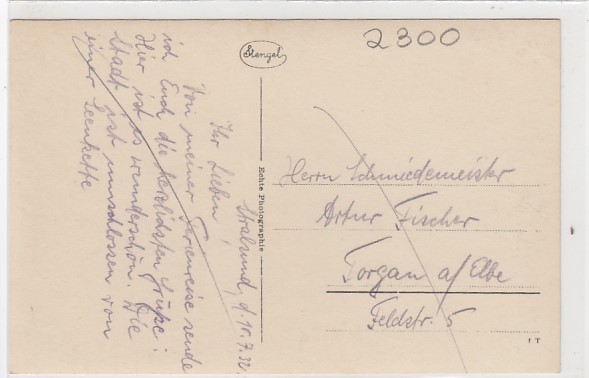 2300
Stengel
Stralsund, d. 10.7.32.
Ihr Lieben!
Von meiner Ferienreise sende
ich Euch die herzlichsten Grüße.
Hier ist es wunderschön. Die
Stadt ist umschlossen von
einer Seenkette
Echte Photographie
Herrn Schmiedemeister
Artur Fischer
Torgau a/Elbe
Feldstr. 5
1 T